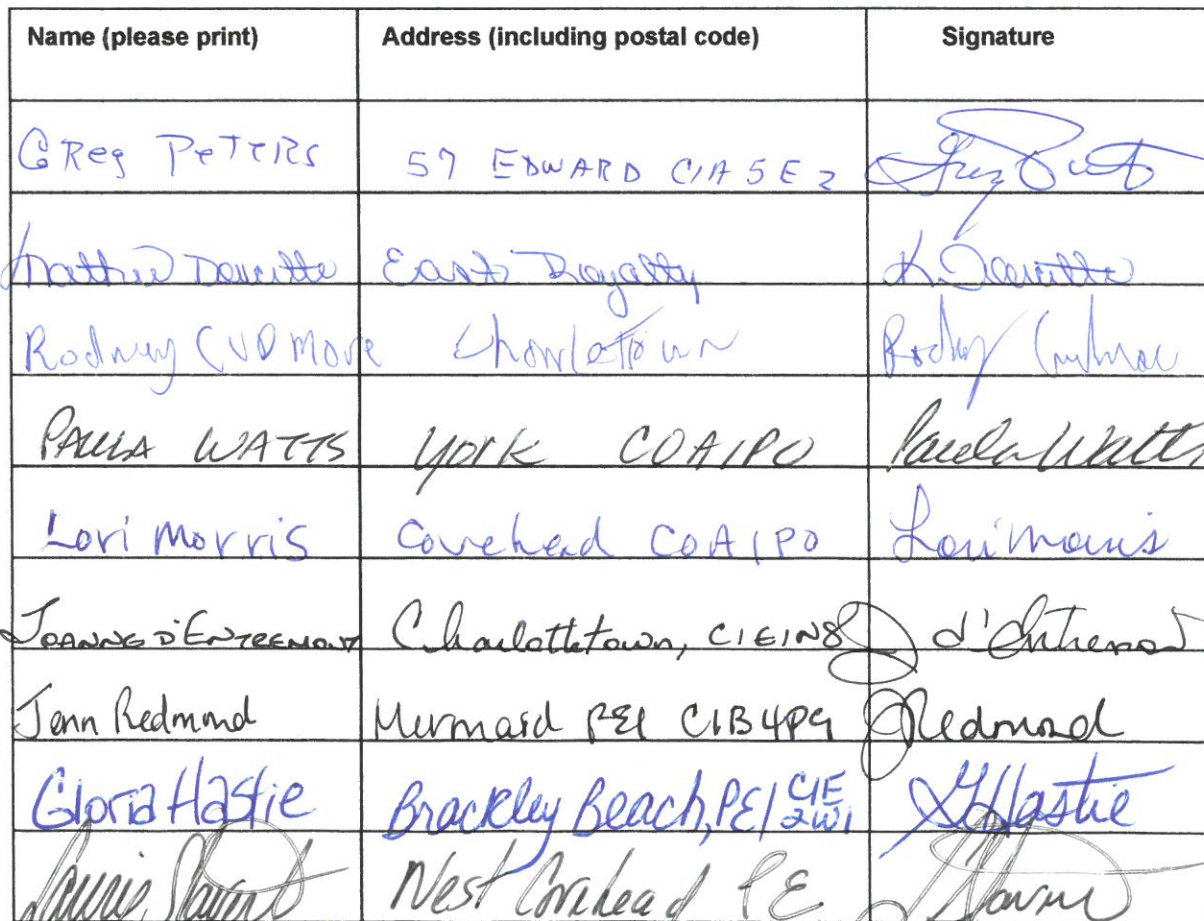 Name (please print) Address (including postal code) Signature
Greg Peters 57 EDWARD C1A 5E2 Greg
Doucette East Royalty K. Doucette
Rodney CUDMore Rodney
PAULA WATTS York COA1PO Paula Watts
Lori Morris Covehead COA1PO Lori Morris
JOANNE D'ENTREMONT Charlottetown, C1E1N8 J d'Entremont
Jenn Redmond Mermaid PEI C1B4P9 JRedmond
Gloria Hastie Brackley Beach, PEI C1E 2W1 GHastie
West Covehead PE